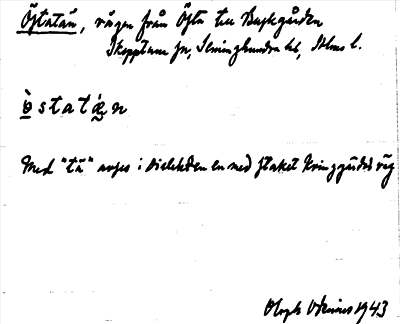 Östatån, vägen från Östa till Buskgården
Skepptuna sn, Seminghundra hd, Sthms l.
ö̀statǽn
Med "tå" avses i dialekten en med staket kringgärdad väg
1943